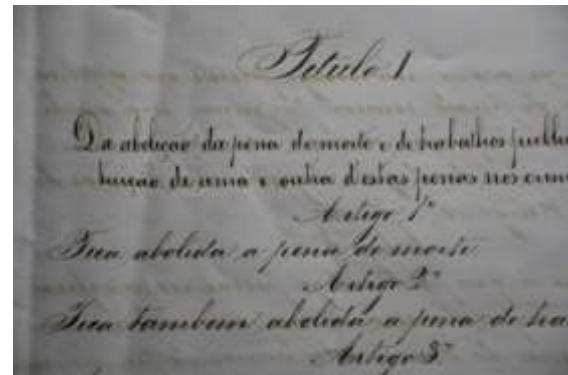 Titulo 1
Da abolição da pena de morte e de trabalhos publi
tuição de uma e outra d'estas penas nos crim
Artigo 1º
Fica abolida a pena de morte.
Artigo 2º
Fica tambem abolida a pena de tra
Artigo 3º